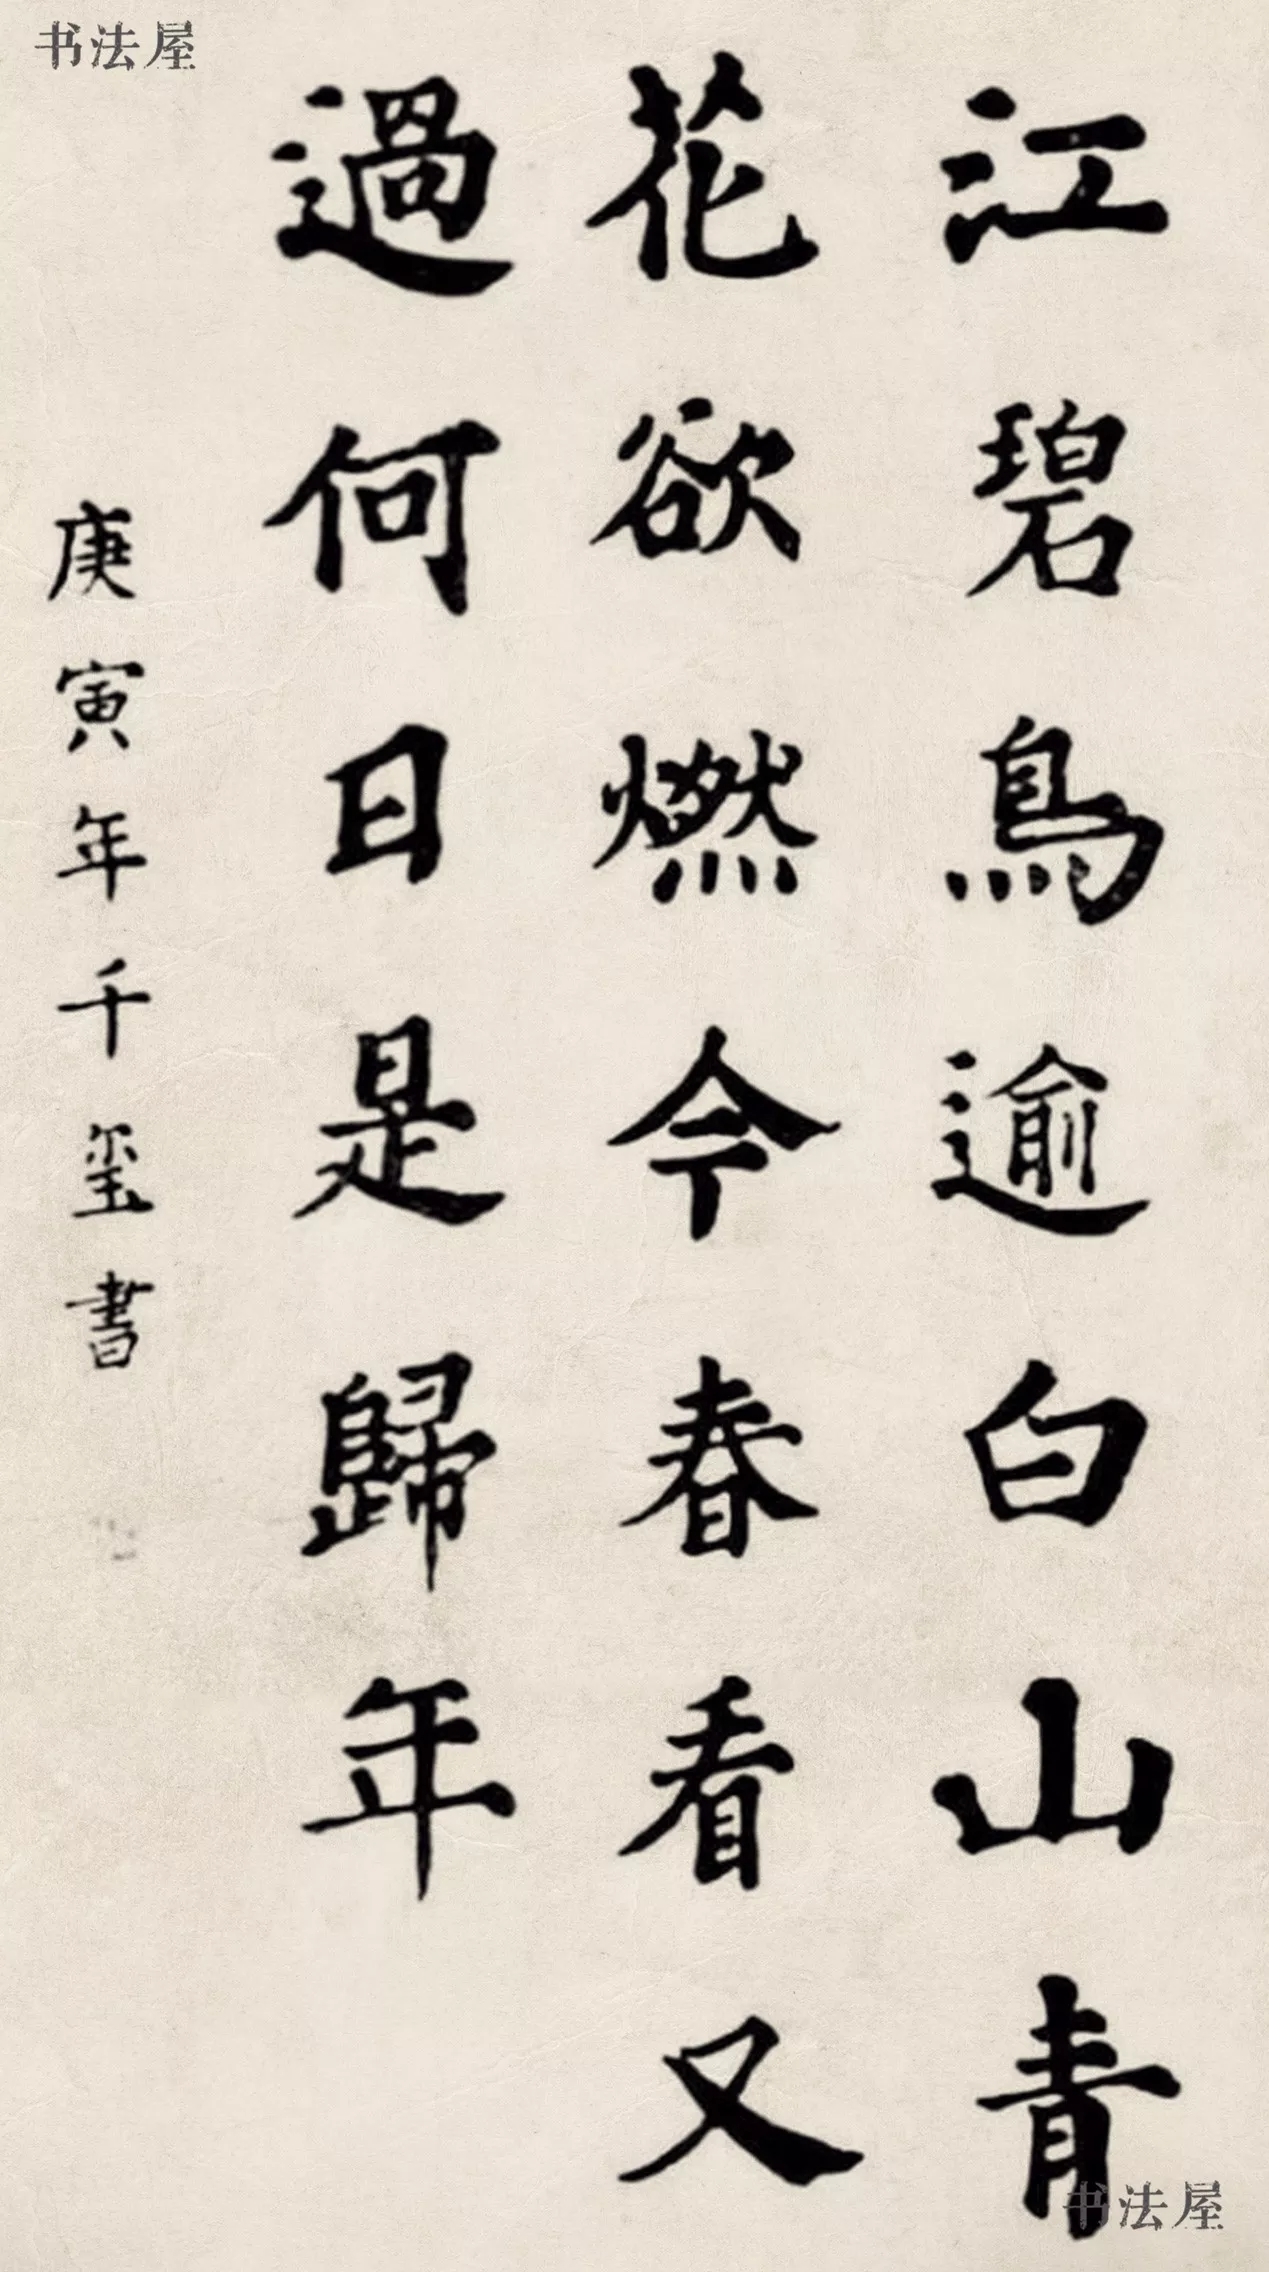 书法屋
江碧鳥逾白山青
花欲燃今春看又
過何日是歸年
庚寅年千玺書
书法屋